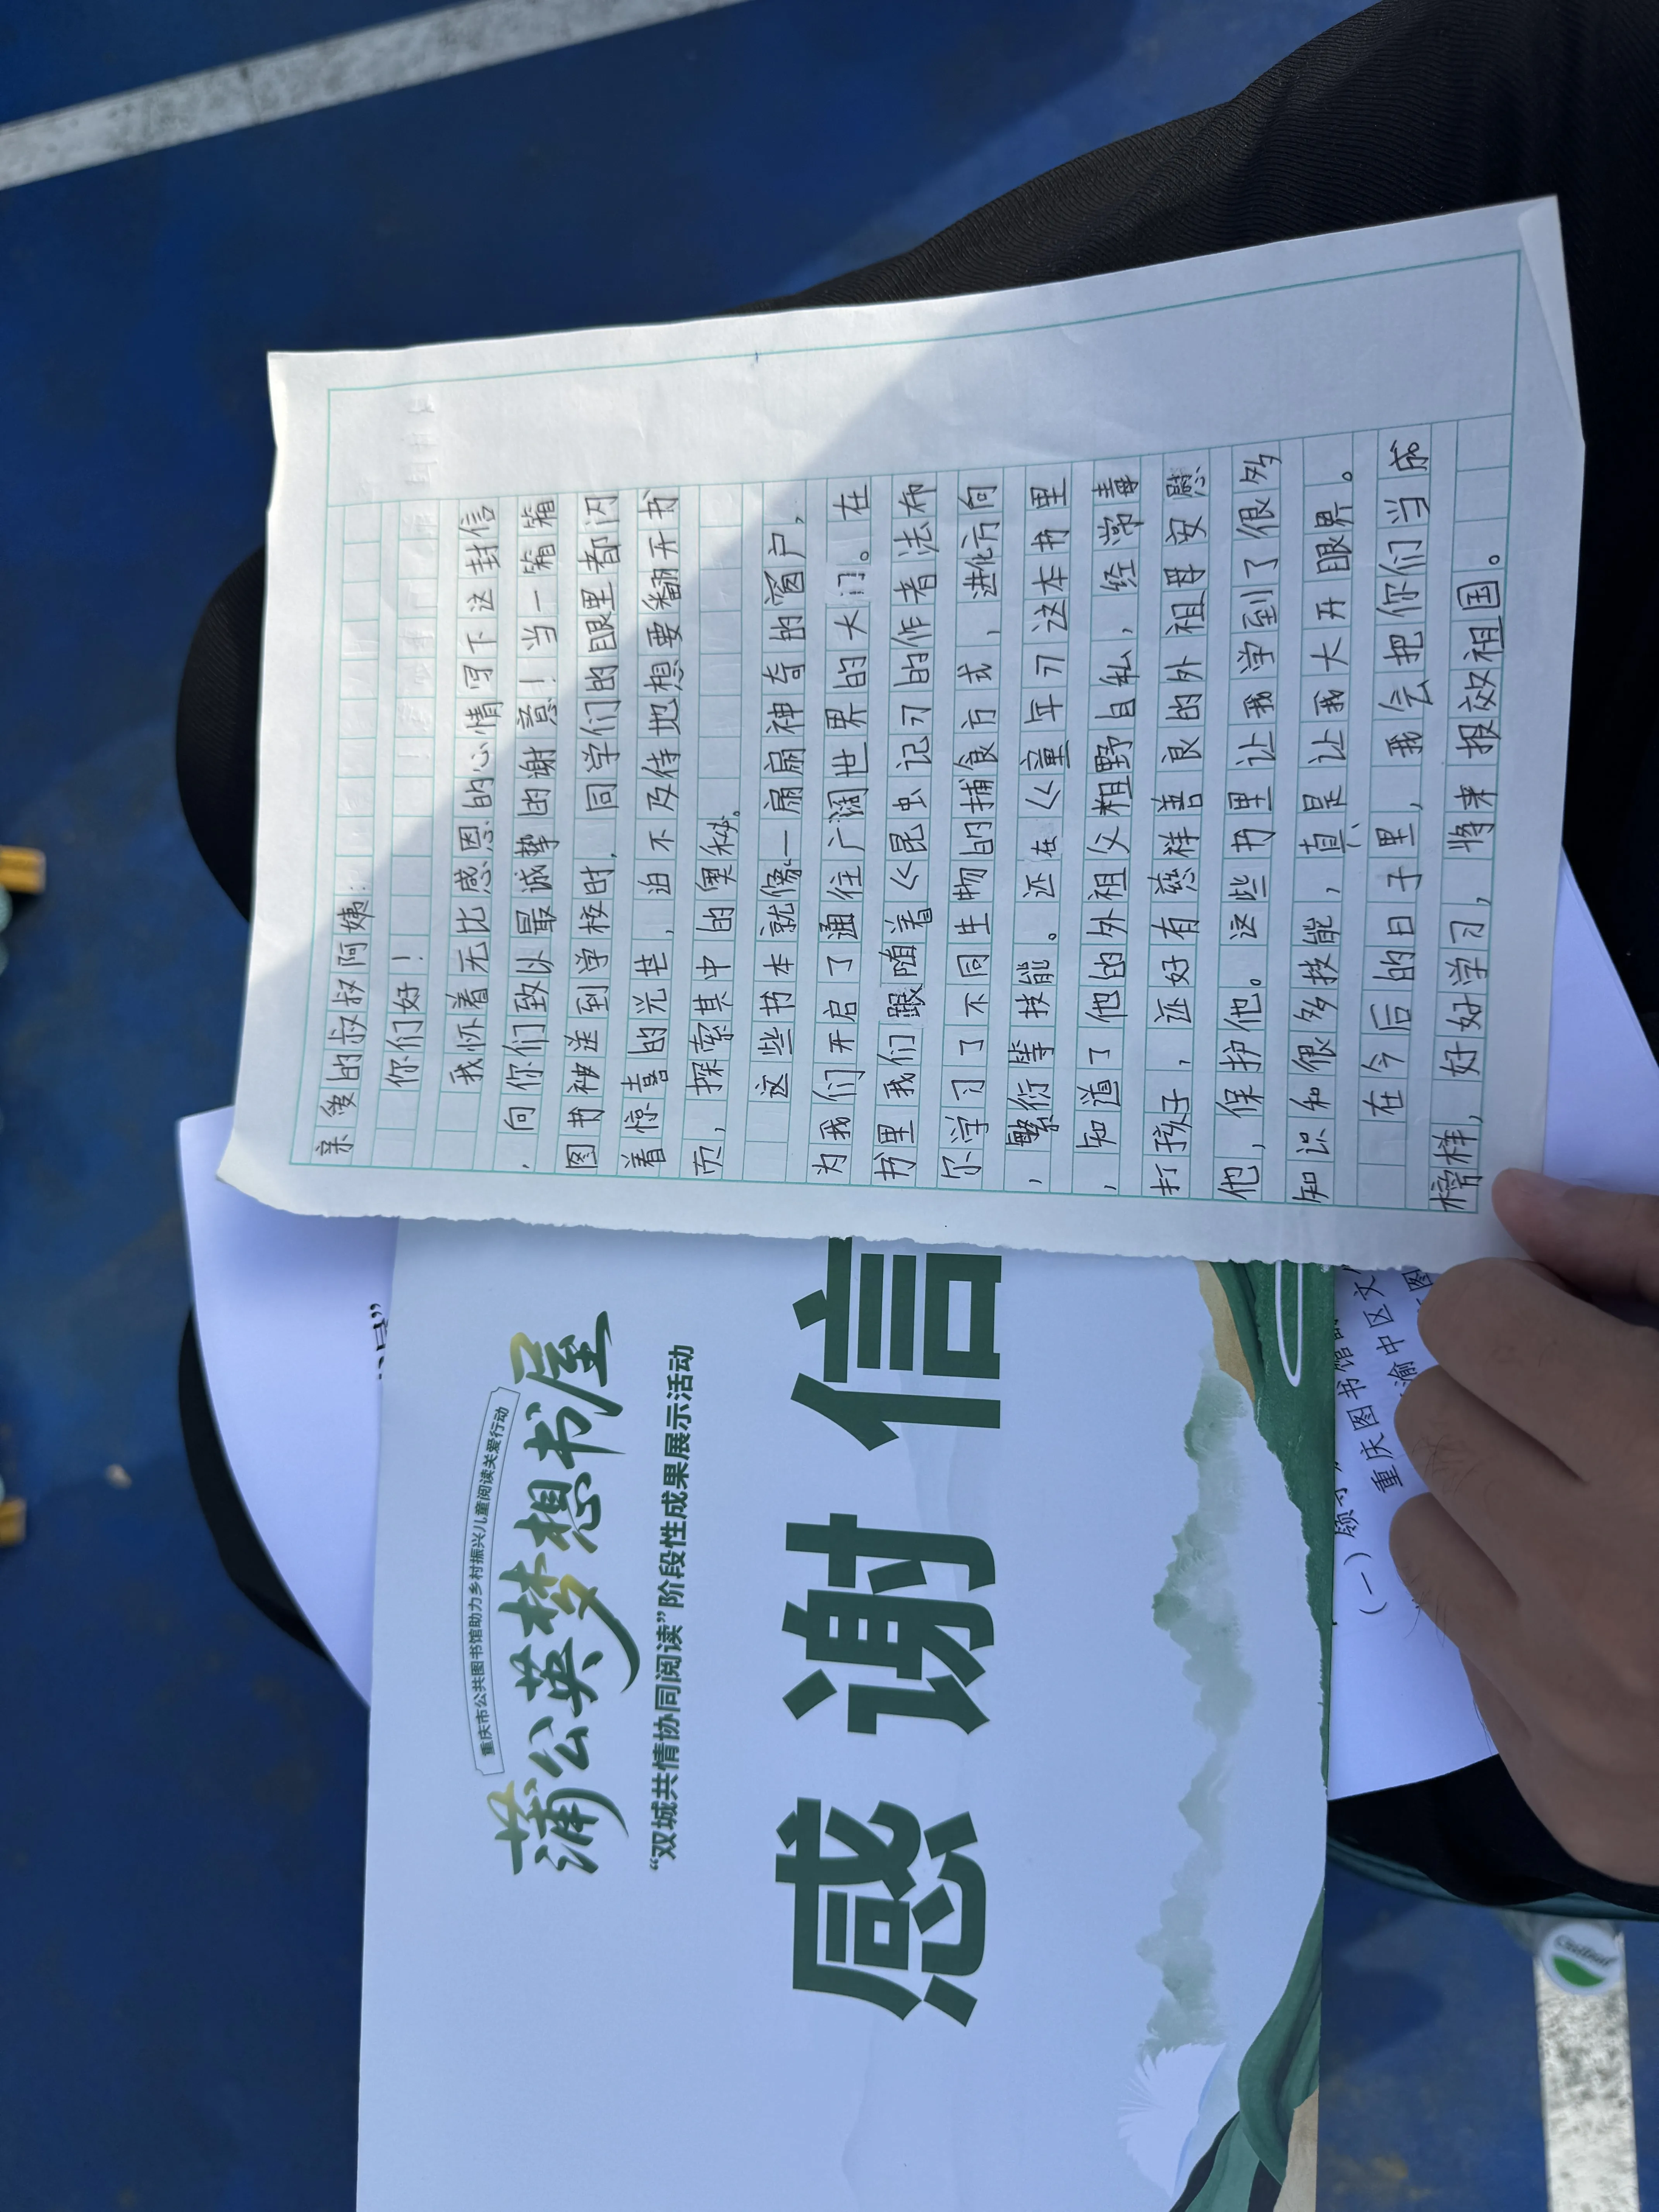 亲爱的叔叔阿姨：
你们好！
我怀着无比感恩的心情写下这封信
，向你们致以最诚挚的谢意！当一箱箱
图书被送到学校时，同学们的眼里都闪
着惊喜的光芒，迫不及待地想要翻开书
页，探索其中的奥秘。
这些书本就像一扇扇神奇的窗户，
为我们开启了通往广阔世界的大门。在
书里我们跟随着《昆虫记》的作者法布
尔学习了不同生物的捕食方式，进化方向
，繁衍等技能。还在《童年》这本书里
，知道了他的外祖父粗野自私，经常毒
打孩子，还好有慈祥善良的外祖母安慰
他，保护他。这些书里让我学到了很多
知识和很多技能，真是让我大开眼界。
在今后的日子里，我会把你们当成
榜样，好好学习，将来报效祖国。
重庆市公共图书馆助力乡村振兴儿童阅读关爱行动
蒲公英梦想书屋
“双城共情协同阅读”阶段性成果展示活动
感谢信
（一）领导
重庆图书馆
渝中区文